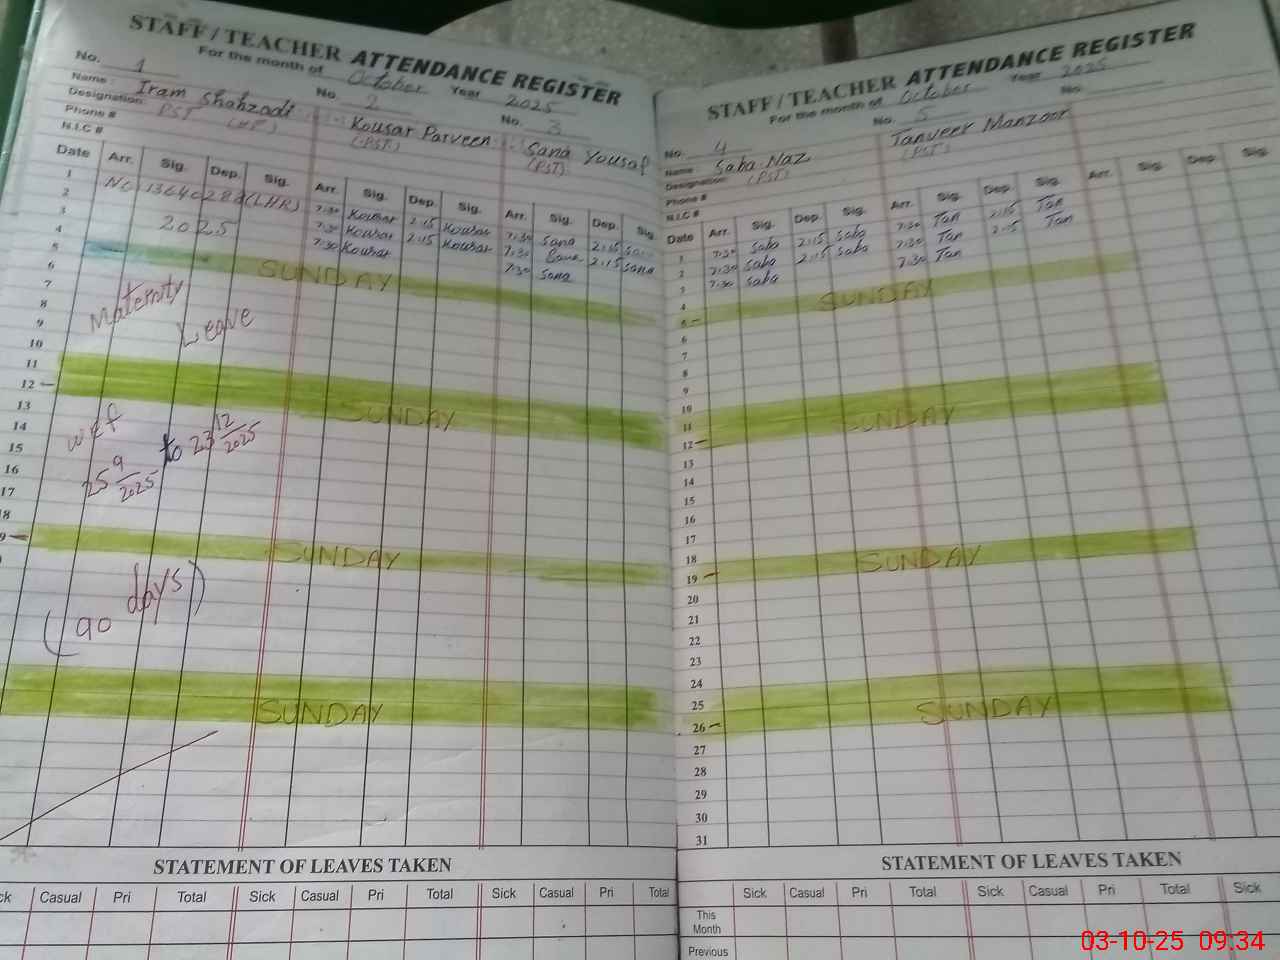 STAFF / TEACHER ATTENDANCE REGISTER
For the month of October Year 2025
No. 1 No. 2 No. 3
Name : Iram Shahzadi Kousar Parveen Sana Yousaf
Designation: PST (PST) (PST)
Phone #
N.I.C #
Date Arr. Sig. Dep. Sig. Arr. Sig. Dep. Sig. Arr. Sig. Dep. Sig.
1 7:30 Kousar 2:15 Kousar 7:30 Sana 2:15 Sana
2 7:30 Kousar 2:15 Kousar 7:30 Sana 2:15 Sana
3 7:30 Kousar 7:30 Sana
No (LHR)
2025
4
5 SUNDAY
6
7
8 Maternity
9 Leave
10
11
12 SUNDAY
13
14 wef
15 25 9/2025 to 23 12/2025
16
17
18
19 SUNDAY
(90 days)
SUNDAY
STATEMENT OF LEAVES TAKEN
Sick Casual Pri Total Sick Casual Pri Total Sick Casual Pri Total
STAFF / TEACHER ATTENDANCE REGISTER
For the month of October Year 2025
No. 4 No. 5 No.
Name Saba Naz Tanveer Manzoor
Designation: (PST) (PST)
Phone #
N.I.C #
Date Arr. Sig. Dep. Sig. Arr. Sig. Dep. Sig. Arr. Sig. Dep. Sig.
1 7:30 Saba 2:15 Saba 7:30 Tan 2:15 Tan
2 7:30 Saba 2:15 Saba 7:30 Tan 2:15 Tan
3 7:30 Saba 7:30 Tan
4
5 SUNDAY
6
7
8
9
10
11
12 SUNDAY
13
14
15
16
17
18
19 SUNDAY
20
21
22
23
24
25
26 SUNDAY
27
28
29
30
31
STATEMENT OF LEAVES TAKEN
Sick Casual Pri Total Sick Casual Pri Total Sick
This Month
Previous
03-10-25 09:34